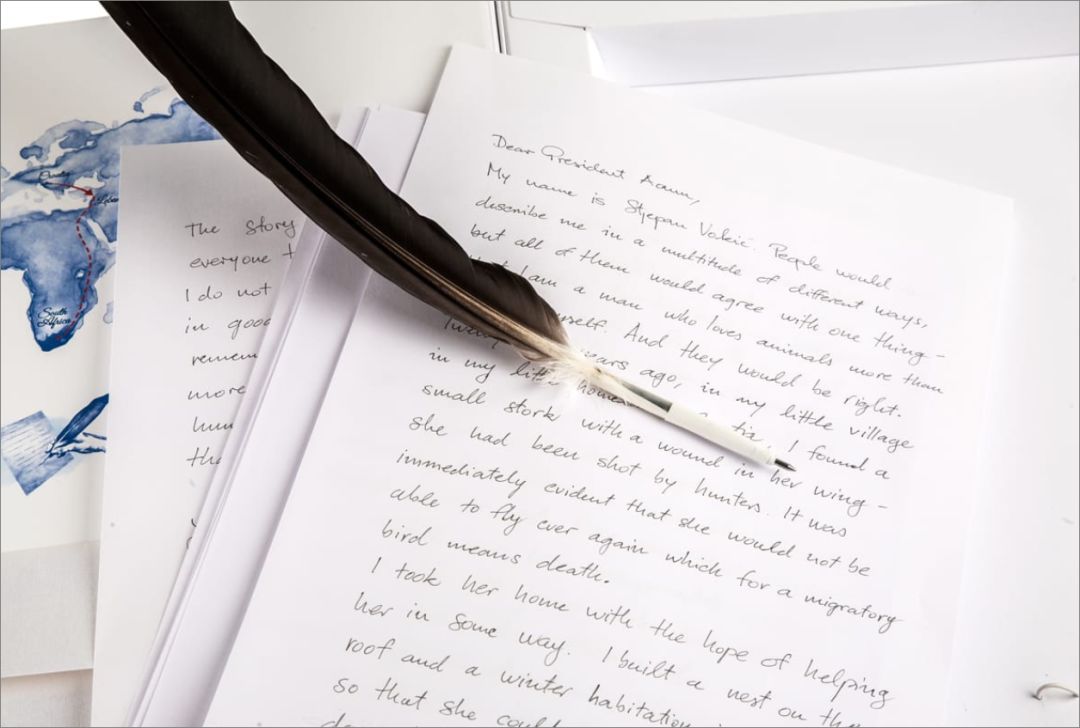 Dear President Aoun,
My name is Stjepan Vokić. People would
describe me in a multitude of different ways,
but all of them would agree with one thing -
I am a man who loves animals more than
myself. And they would be right.
years ago, in my little village
in my little home I found a
small stork with a wound in her wing -
she had been shot by hunters. It was
immediately evident that she would not be
able to fly ever again which for a migratory
bird means death.
I took her home with the hope of helping
her in some way. I built a nest on the
roof and a winter habitation
so that she could
The story
everyone
I do not
in good
more
South
Africa